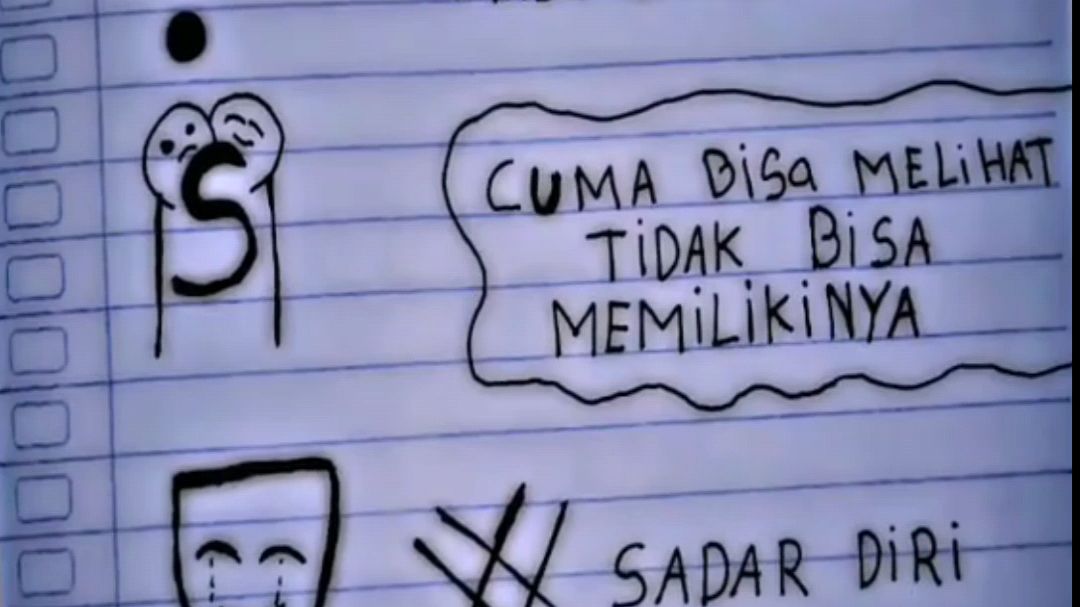 S
CUMA BiSa MELiHAT
TiDAK BiSA
MEMiLiKiNYA
SADAR DiRi